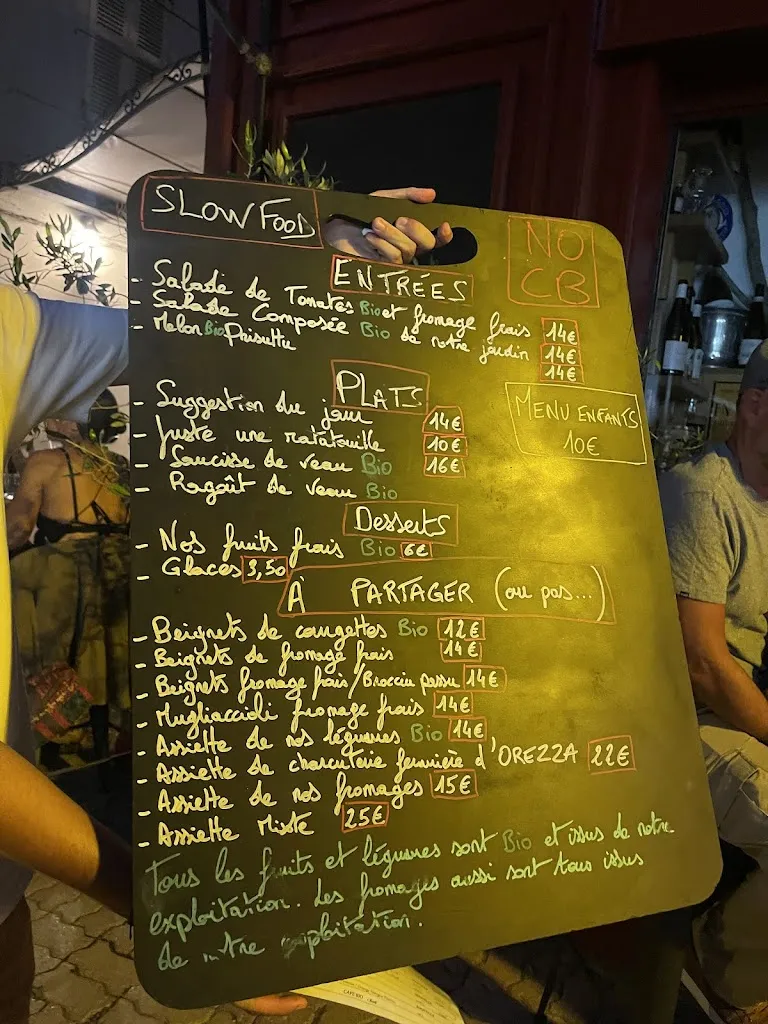 SLOW FOOD
NO
CB
ENTRÉES
- Salade de Tomates Bio et fromage frais 14€
- Salade Composée Bio de notre jardin 14€
- Melon Bio Prisuttu 14€
PLATS
MENU ENFANTS
10€
- Suggestion du jour 14€
- Juste une ratatouille 10€
- Saucisse de veau Bio 16€
- Ragoût de veau Bio
Desserts
- Nos fruits frais Bio 6€
- Glaces 3,50
À PARTAGER (ou pas...)
- Beignets de courgettes Bio 12€
- Beignets de fromage frais 14€
- Beignets fromage frais/Brocciu passu 14€
- Mugliaccioli fromage frais 14€
- Assiette de nos légumes Bio 14€
- Assiette de charcuterie fermière d'OREZZA 22€
- Assiette de nos fromages 15€
- Assiette Mixte 25€
Tous les fruits et légumes sont Bio et issus de notre
exploitation. Les fromages aussi sont tous issus
de notre exploitation.